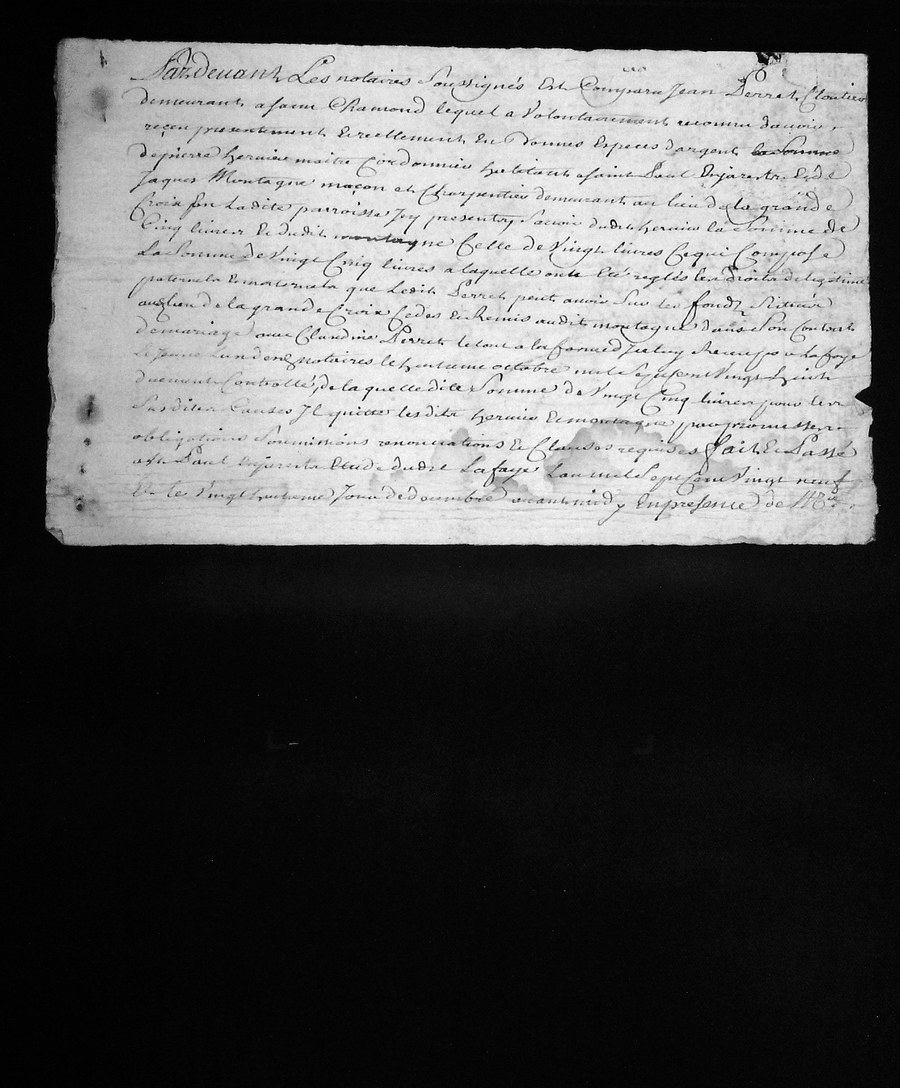 Par devant Les notaires Soussignés Est Comparu Jean Perret Cloutier
demeurant a saint Chamond lequel a Volontairement reconnu d'avoir
reçeu presentement Et reellement En bonnes Especes d'argent la Somme
de pierre hervier maitre Cordonnier habitant a saint Paul En jarest Et de
Jaques Montagne maçon et Charpentier demeurant au lieu de la grande
Croix Sur Ladite parroisse Icy presents Scavoir dudit hervier la Somme de
Cinq livres Et dudit montagne Celle de Vingt livres Ce qui Compose
La Somme de Vingt Cinq livres a laquelle ont été reglés les droits de legitime
paternels Et maternels que Ledit Perret peut avoir Sur les fonds Scitués
au lieu de la grande Croix Cedes Et Remis audit montagne dans Son Contrat
de mariage avec Claudine Perret le tout a la forme d'Iceluy Receu par Lafaye
Le Jeune L'un des notaires le huitieme octobre mil Sept Cent Vingt huit
duement Controllé, de laquelle dite Somme de Vingt Cinq livres pour les
Susdites Causes Il quitte lesdits hervier Et montagne par promesses
obligations Soumissions renonciations Et Clauses requises fait Et Passé
a St Paul En jarest Etude dudit Lafaye L'an mil Sept Cent Vingt neuf
Et le Vingt huitieme Jour de decembre avant midy En presence de